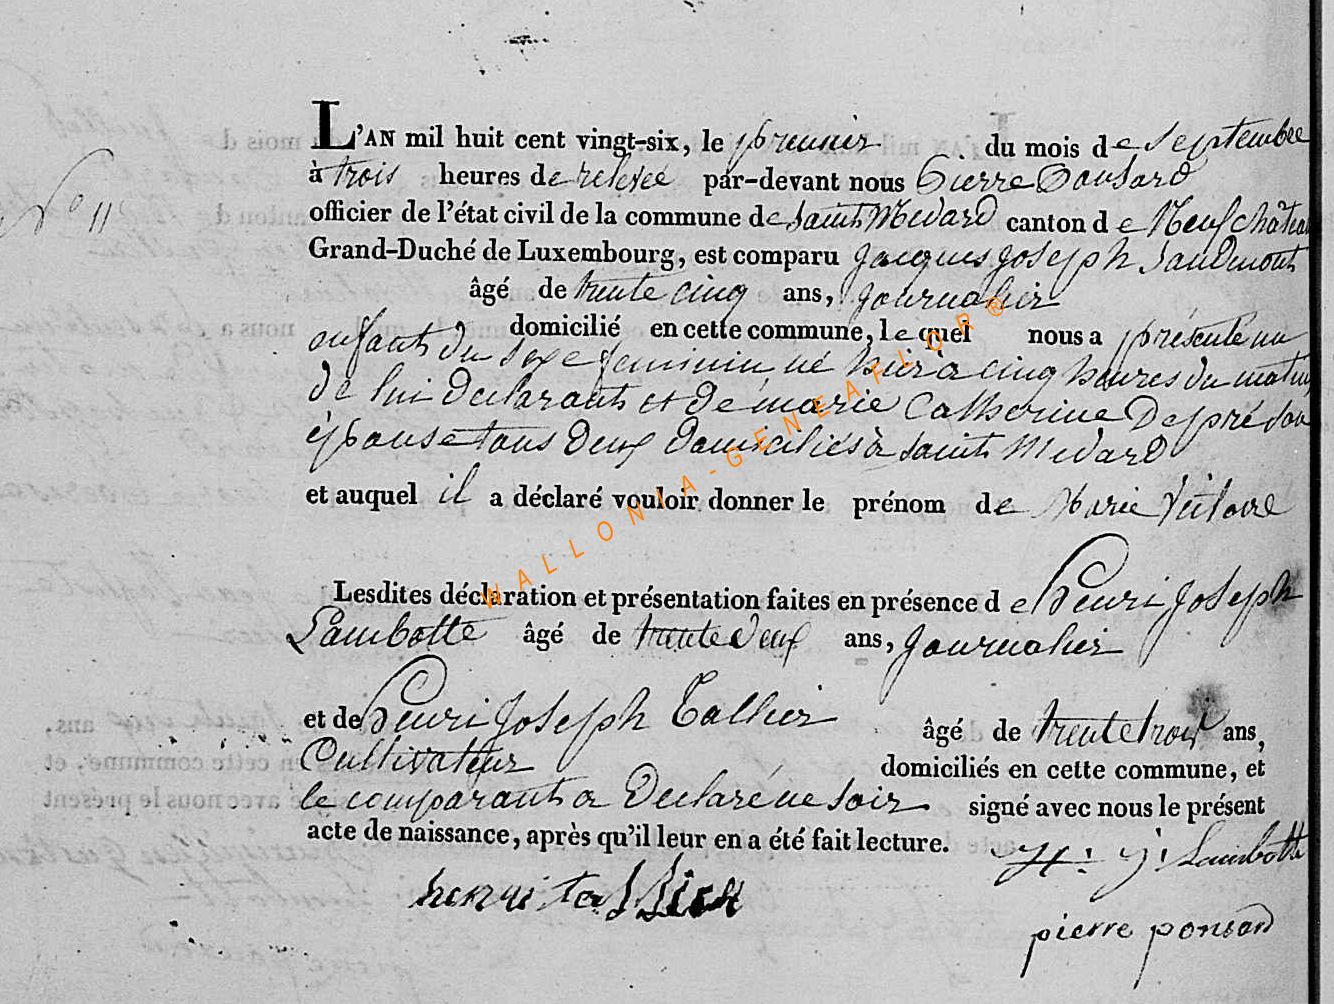 L'AN mil huit cent vingt-six, le premier du mois de septembre
N° 11
à trois heures de relevée par-devant nous Pierre Ponsard
officier de l'état civil de la commune de saint Medard canton de Neufchâteau
Grand-Duché de Luxembourg, est comparu Jacques Joseph Saudmont
âgé de trente cinq ans, journalier
domicilié en cette commune, le quel nous a présenté un
enfant du sexe feminin né hier à cinq heures du matin
de lui declarant et de marie Catherine Despré son
épouse tous deux domiciliés à saint Medard
et auquel il a déclaré vouloir donner le prénom de Marie Victoire
Lesdites déclaration et présentation faites en présence de henri Joseph
Lambotte âgé de trente deux ans, journalier
et de henri Joseph Tallier âgé de trente trois ans,
Cultivateur domiciliés en cette commune, et
le comparant a declaré ne savoir signé avec nous le présent
acte de naissance, après qu'il leur en a été fait lecture.
H: J: Lambotte
henri
pierre ponsard
WALLONIA-GENEAFLOR®